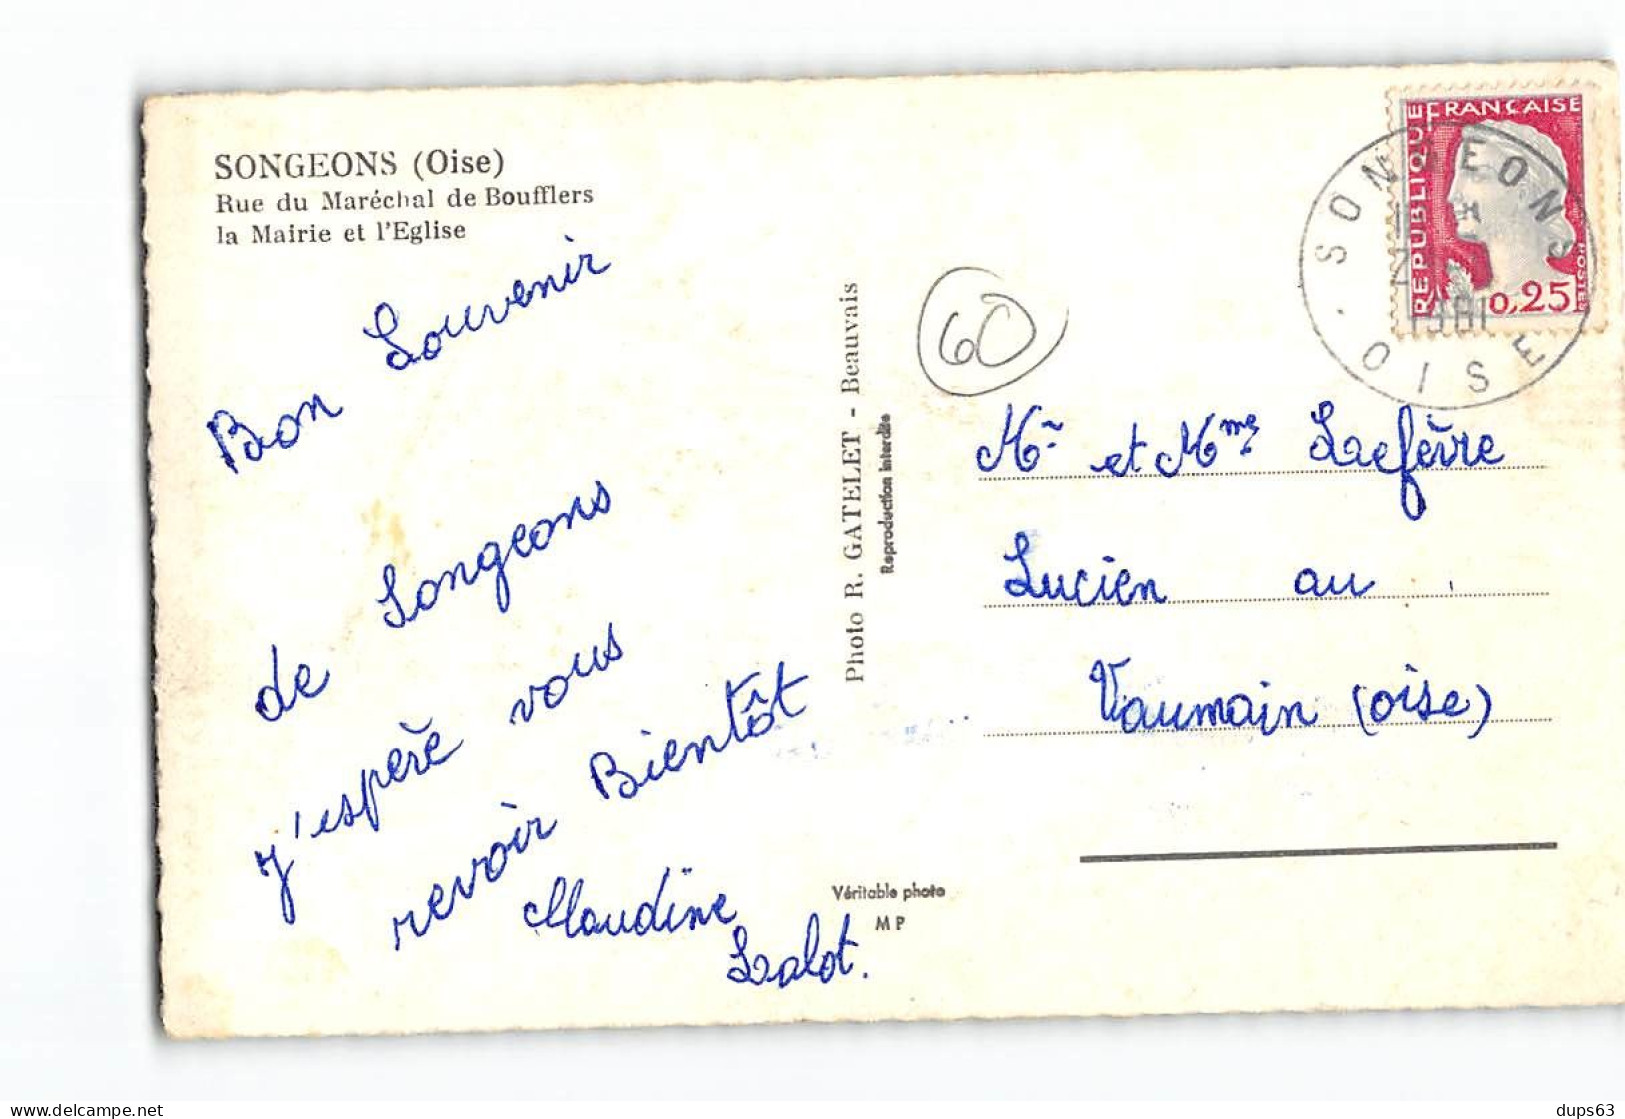 SONGEONS (Oise)
Rue du Maréchal de Boufflers
la Mairie et l'Eglise
Bon Souvenir
de Songeons
j'espère vous
revoir Bientôt
Claudine
Lalot.
Photo R. GATELET - Beauvais
Reproduction interdite
Véritable photo
MP
60
REPUBLIQUE FRANÇAISE
0,25
SONGEONS
OISE
Mr et Mme Lefèvre
Lucien au
Vaumain (oise)
delcampe.net
dups63